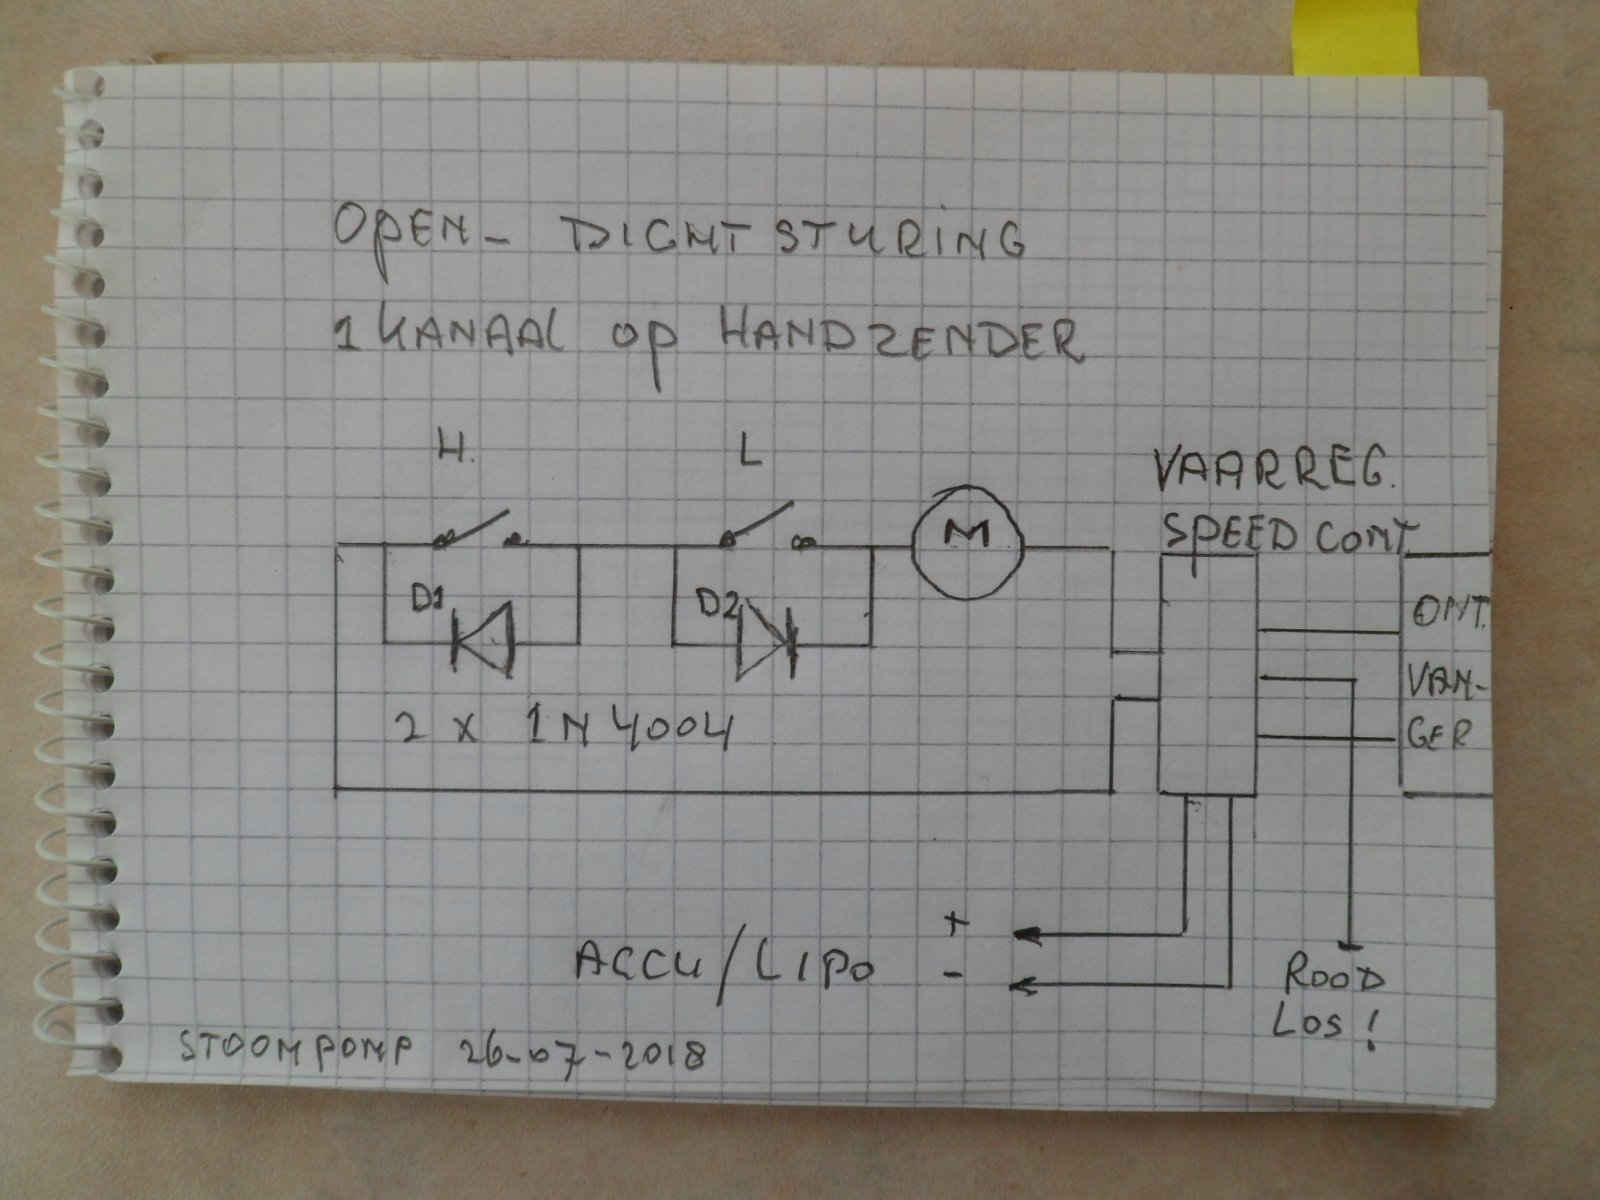 OPEN- DICHT STURING
1 KANAAL OP HANDZENDER
H.
L
VAARREG.
SPEED CONT
M
D1
D2
ONT.
VAN-
GER
2 x 1N4004
+
ACCU/LIPO
-
ROOD
LOS!
STOOMPOMP 26-07-2018